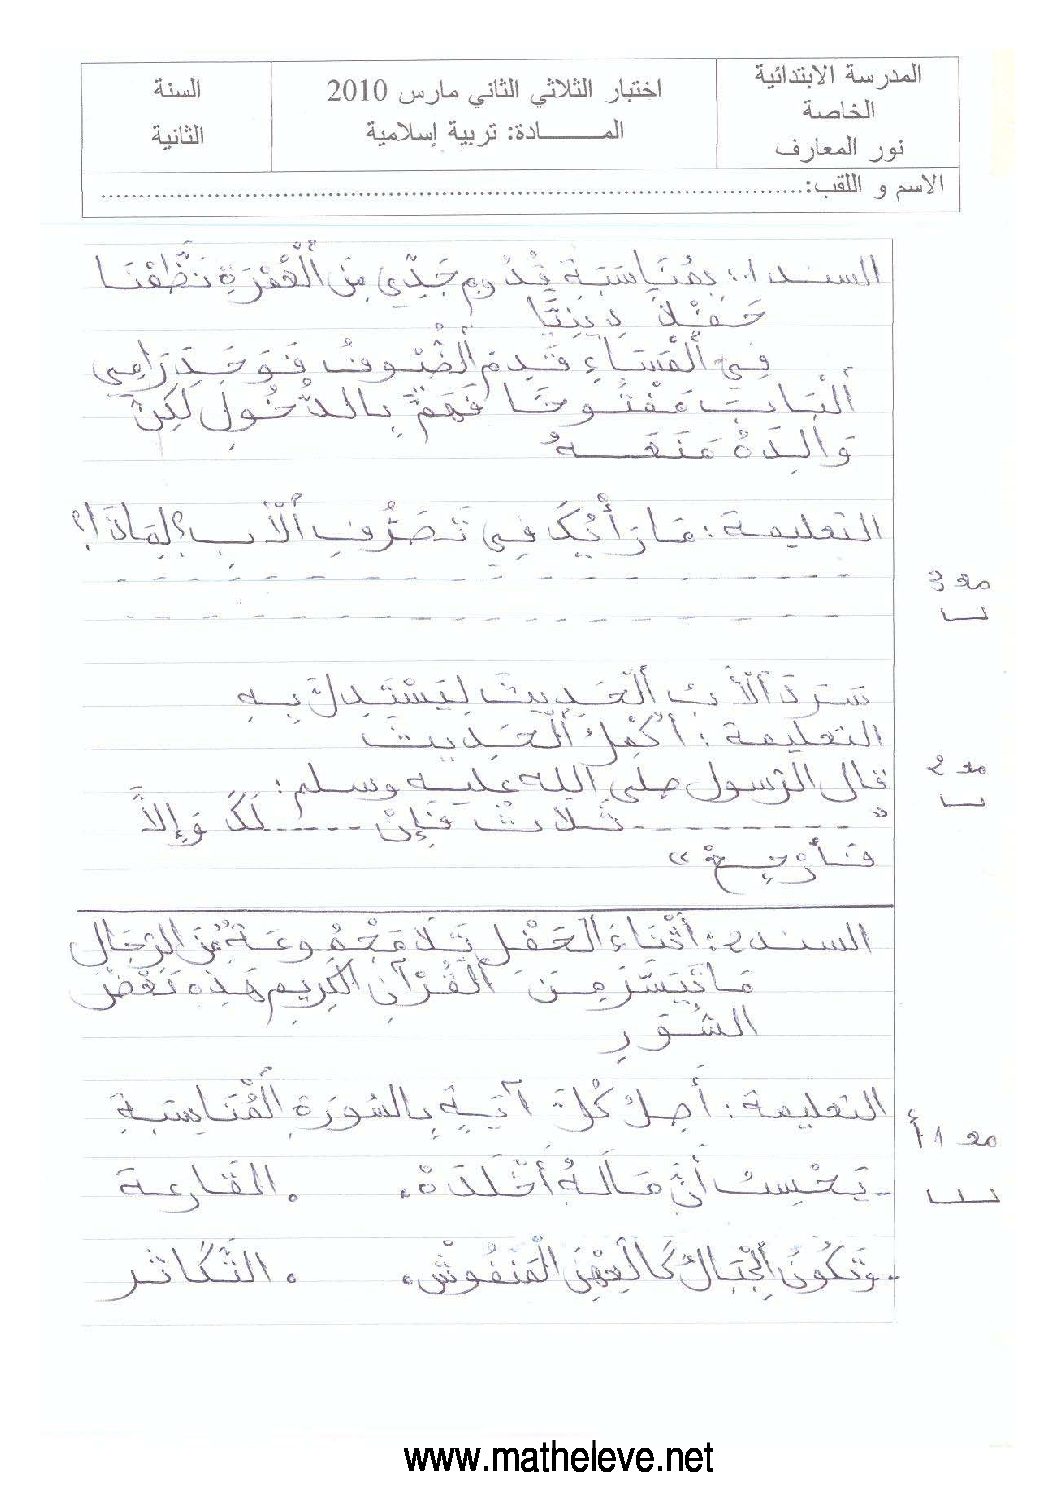 المدرسة الابتدائية
الخاصة
نور المعارف
اختبار الثلاثي الثاني مارس 2010
المـــــــادة: تربية إسلامية
السنة
الثانية
الاسم و اللقب:
السند 1: بِمُنَاسَبَةِ قُدُومِ جَدِّي مِنَ الْعُمْرَةِ نَظَّمْنَا
حَفْلاً دِينِيًّا
فِي الْمَسَاءِ قَدِمَ الضُّيُوفُ فَوَجَدَ رَامِي
الْبَابَ مَفْتُوحًا فَهَمَّ بِالدُّخُولِ لَكِنَّ
وَالِدَهُ مَنَعَـــهُ
التعليمة: مَا رَأْيُكَ فِي تَصَرُّفِ الْأَبِ؟ لِمَاذَا؟
مع 3
سَرَدَ الْأَبُ الْحَدِيثَ لِيَسْتَدِلَّ بِهِ
التعليمة: أُكْمِلُ الْحَدِيثَ
مع 2
قال الرّسول صلى الله عليه وسلم:
« ---------- ثَلَاثٌ فَإِنْ ----- لَكَ وَإِلاَّ
فَـأرْجِـعْ »
السند 2: أَثْنَاءَ الْحَفْلِ تَلَا مَجْمُوعَةٌ مِنَ الرِّجَالِ
مَا تَيَسَّرَ مِنَ الْقُرْآنِ الْكَرِيمِ هَذِهِ بَعْضُ
السُّوَرِ
التعليمة: أَصِلُ كُلَّ آيَةٍ بِالسُّورَةِ الْمُنَاسِبَةِ
مع 1 أ
- يَحْسِبُ أَنَّ مَالَهُ أَخْلَدَهُ • • القَارِعة
- وَتَكُونُ الْجِبَالُ كَالْعِهْنِ الْمَنْفُوشْ • • التَّكَاثر
www.matheleve.net